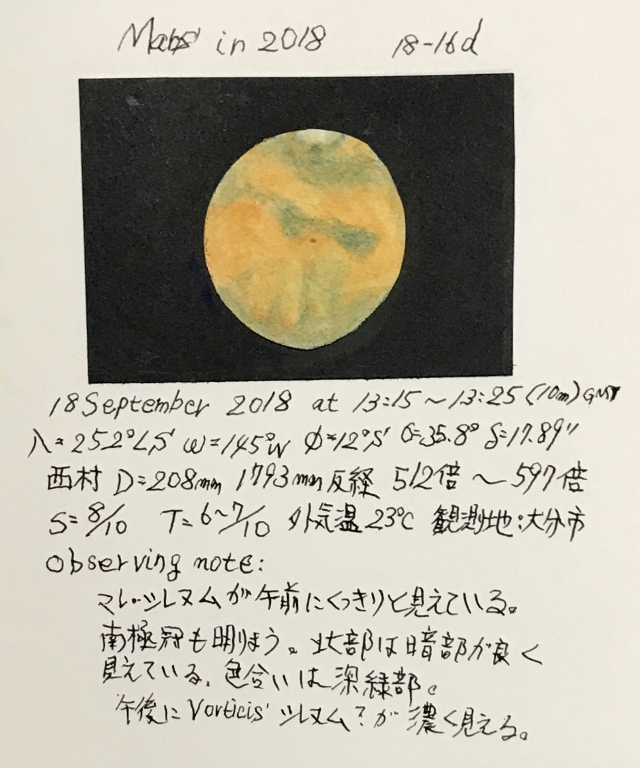 Mars in 2018 18-16d
18 September 2018 at 13:15～13:25 (10m) GMT
λ=252°LS ω=145°W φ=12°S θ=35.8° δ=17.89"
西村 D=208mm 1793mm反経 512倍～597倍
S=8/10 T=6~7/10 外気温23℃ 観測地:大分市
Observing note:
マレ・シレヌムが午前にくっきりと見えている。
南極冠も明りょう。北部は暗部が良く
見えている。色合いは深緑部。
午後にVorticis ツレヌム?が濃く見える。